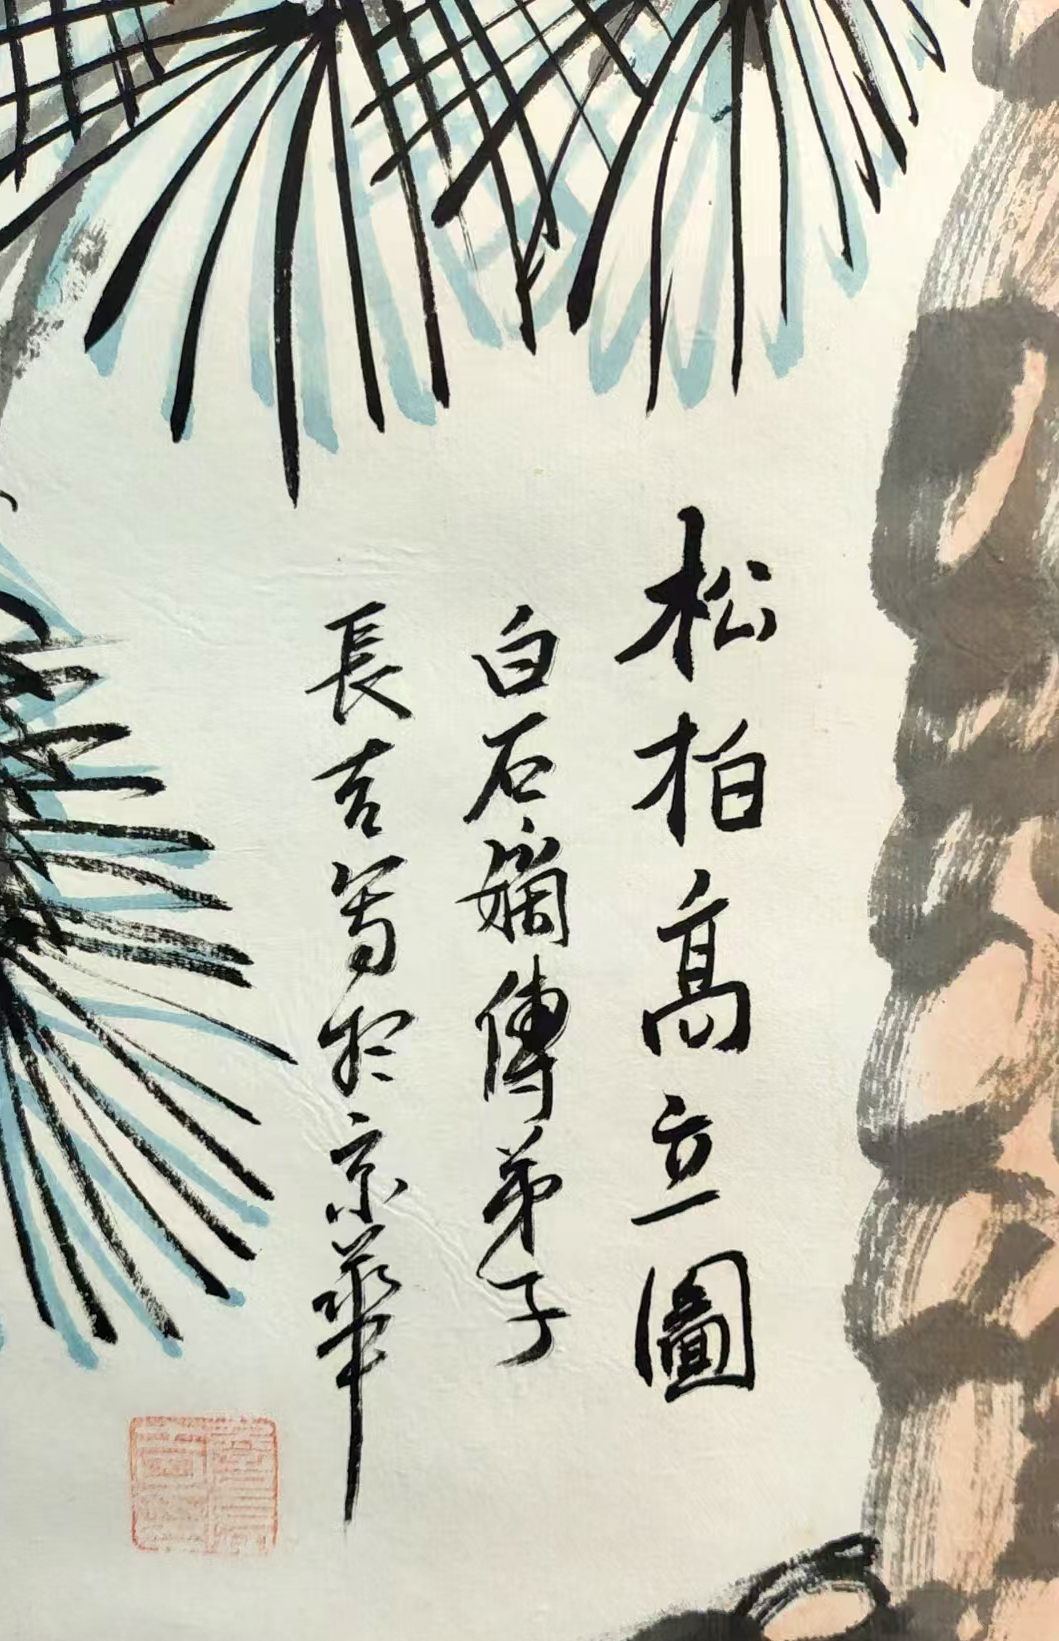 松柏高立圖
白石嫡傳弟子
長吉寫於京華